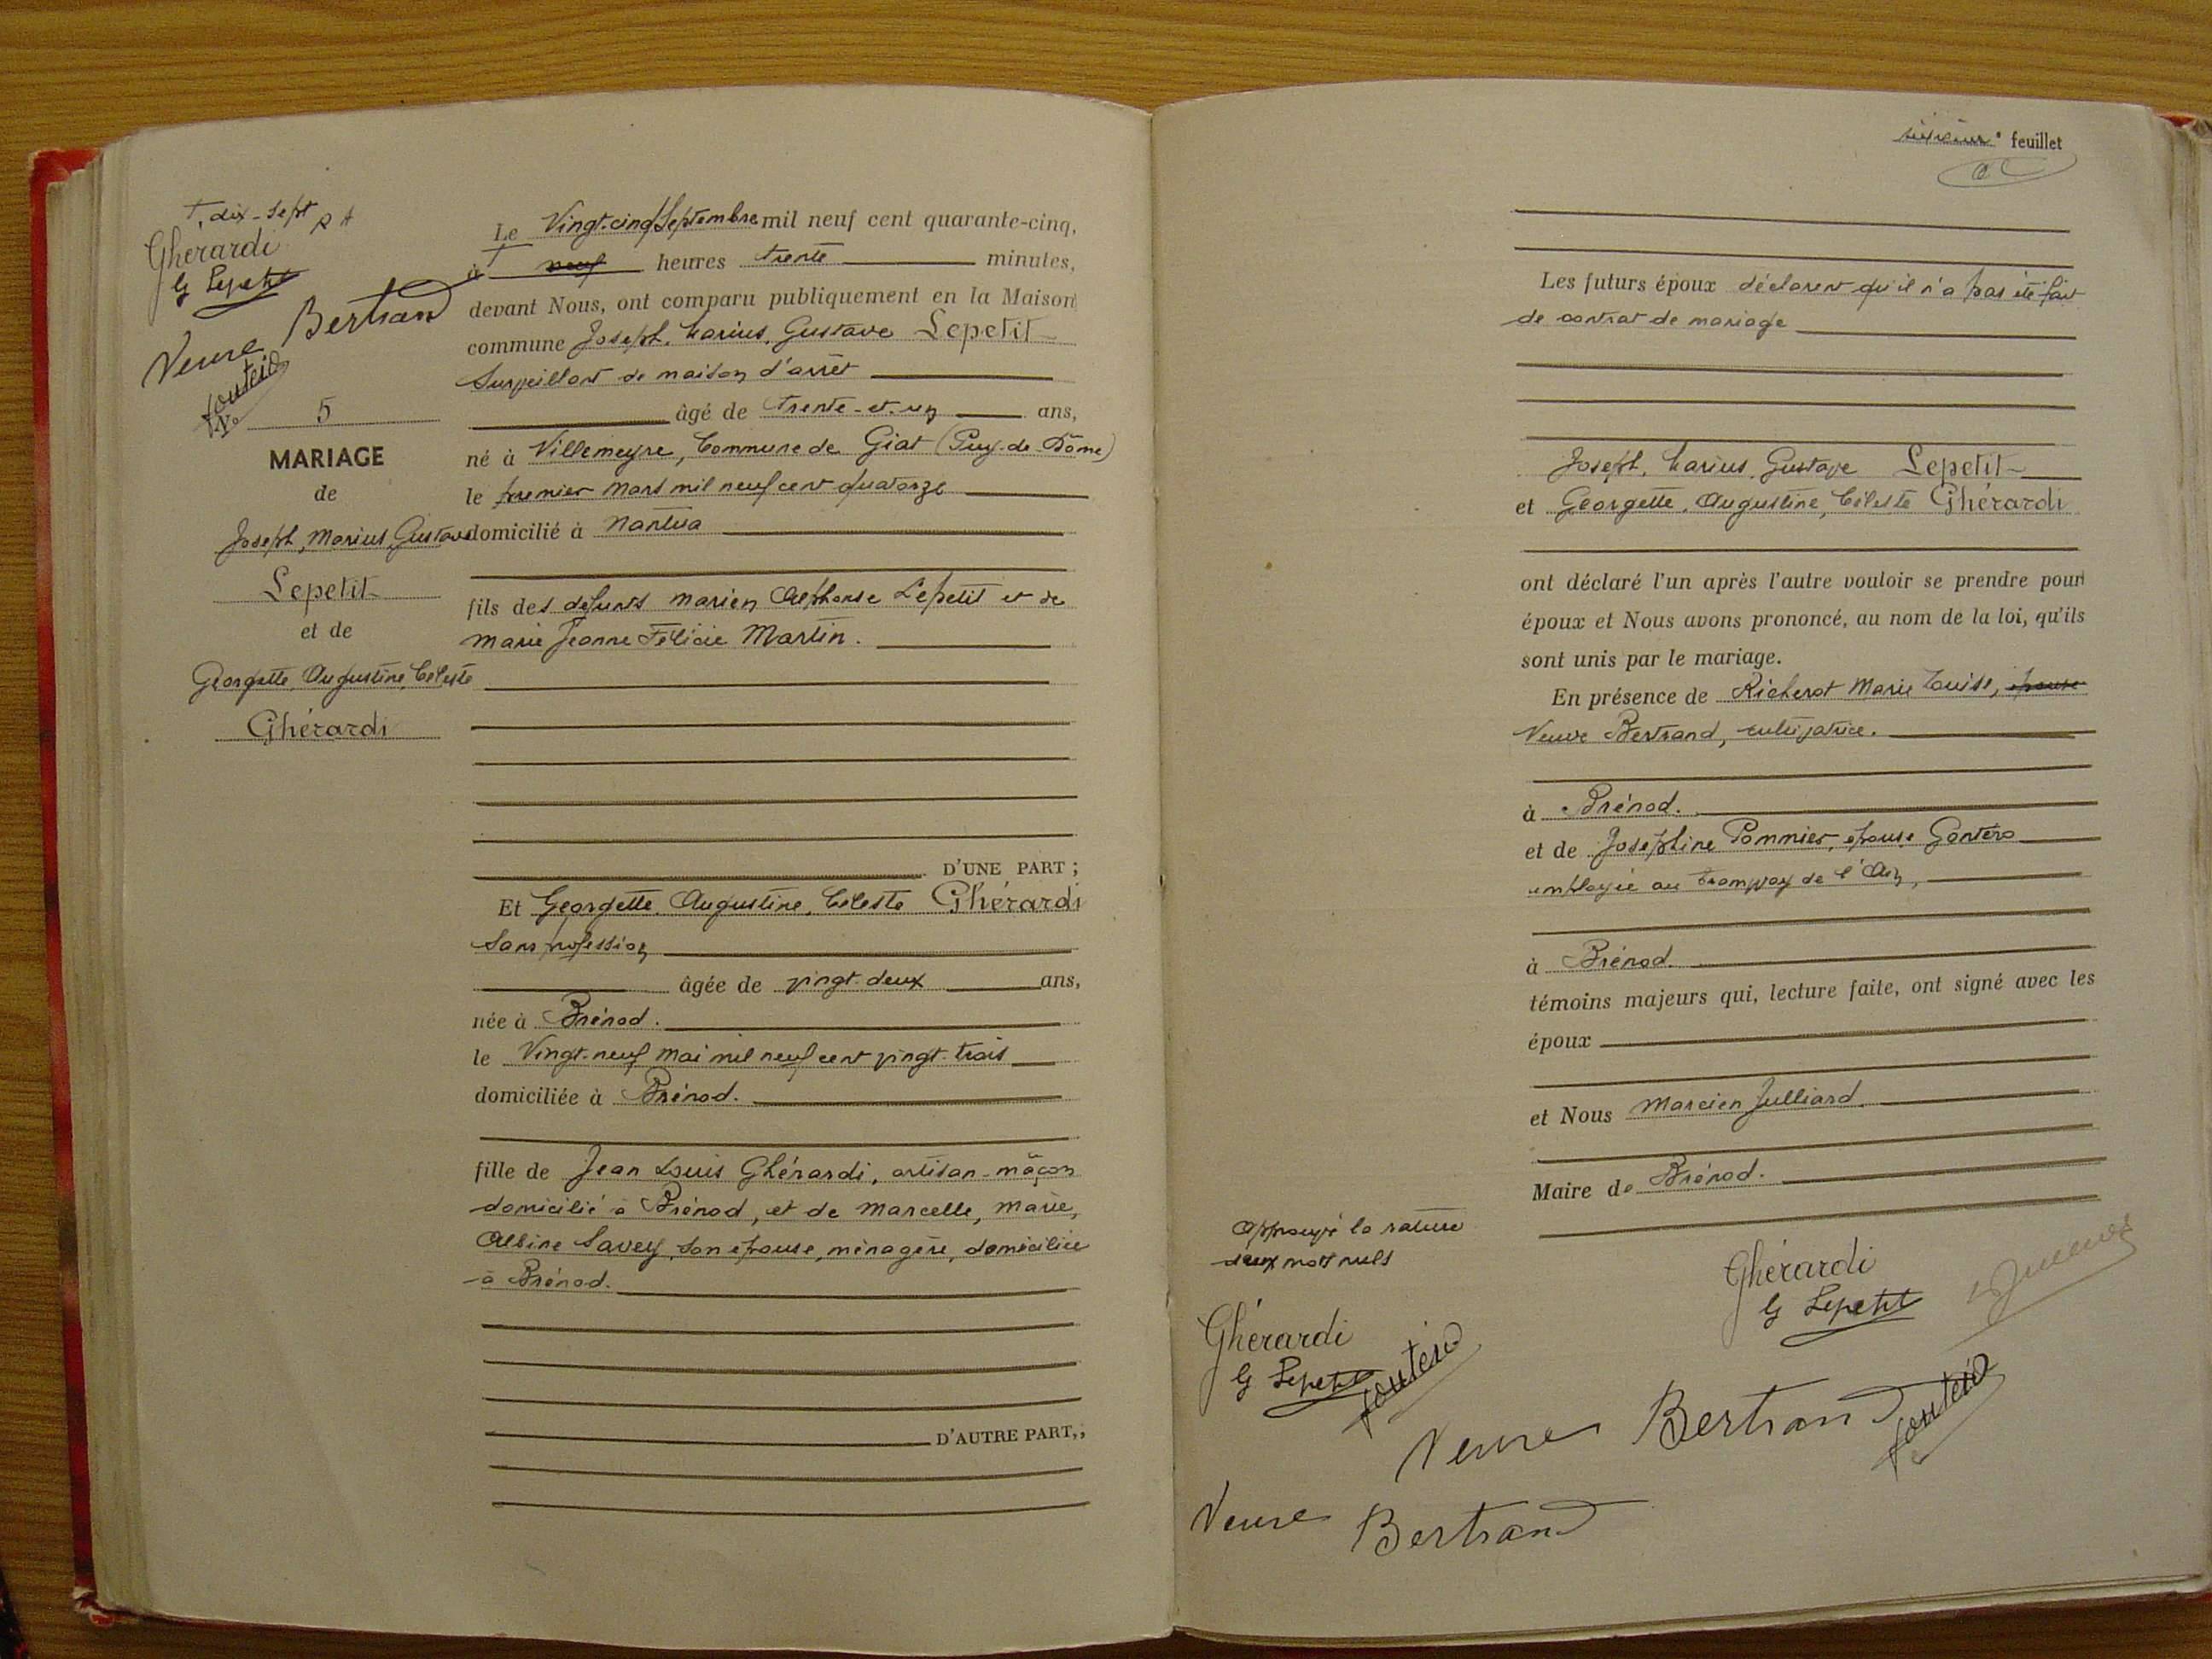 dix-sept
Ghérardi
G Lepetit
Veuve Bertrand
No 5
MARIAGE
de
Joseph, Marius, Gustave
Lepetit
et de
Georgette, Augustine, Céleste
Ghérardi
Le Vingt-cinq Septembre mil neuf cent quarante-cinq,
à neuf heures trente minutes,
devant Nous, ont comparu publiquement en la Maison
commune Joseph, Marius, Gustave Lepetit
Surveillant de maison d'arrêt
âgé de trente-et-un ans,
né à Villemeyre, Commune de Giat (Puy-de-Dôme)
le premier Mars mil neuf cent quatorze
domicilié à Nantua
fils des défunts Marien Alphonse Lepetit et de
Marie Jeanne Félicie Martin.
D'UNE PART ;
Et Georgette, Augustine, Céleste Ghérardi
Sans profession
âgée de vingt-deux ans,
née à Brénod.
le Vingt-neuf Mai mil neuf cent vingt-trois
domiciliée à Brénod.
fille de Jean Louis Ghérardi, artisan-mâçon
domicilié à Brénod, et de Marcelle, Marie,
Albine Savey, son épouse, ménagère, domiciliée
à Brénod.
D'AUTRE PART,,
feuillet
Les futurs époux déclarent qu'il n'a pas été fait
de contrat de mariage
Joseph, Marius, Gustave Lepetit
et Georgette, Augustine, Céleste Ghérardi
ont déclaré l'un après l'autre vouloir se prendre pour
époux et Nous avons prononcé, au nom de la loi, qu'ils
sont unis par le mariage.
En présence de Richerot Marie Louise, épouse
Veuve Bertrand, cultivatrice.
à Brénod.
et de Joséphine Pommier, épouse Gontéro
employée au tramway de l'Ain,
à Brénod.
témoins majeurs qui, lecture faite, ont signé avec les
époux
et Nous Marcien Julliard.
Maire de Brénod.
Approuvé la rature
deux mots nuls
Ghérardi
G Lepetit
Ghérardi
G Lepetit
Veuve Bertrand
Veuve Bertrand